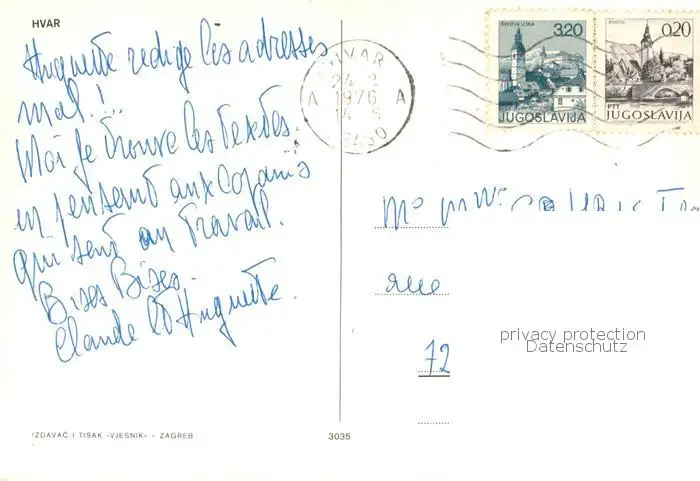 HVAR
Huguette redige les adresses
mal!..
Moi je trouve les textes.
en pensent aux copains
qui sent au travail.
Bises Bises.
Claude et Huguette.
IZDAVAČ I TISAK «VJESNIK» - ZAGREB
3035
HVAR
24 2
A 1976 A
ŠKOFJA LOKA
3,20
JUGOSLAVIJA
BOHINJ
0,20
PTT
JUGOSLAVIJA
rue
72
privacy protection
Datenschutz